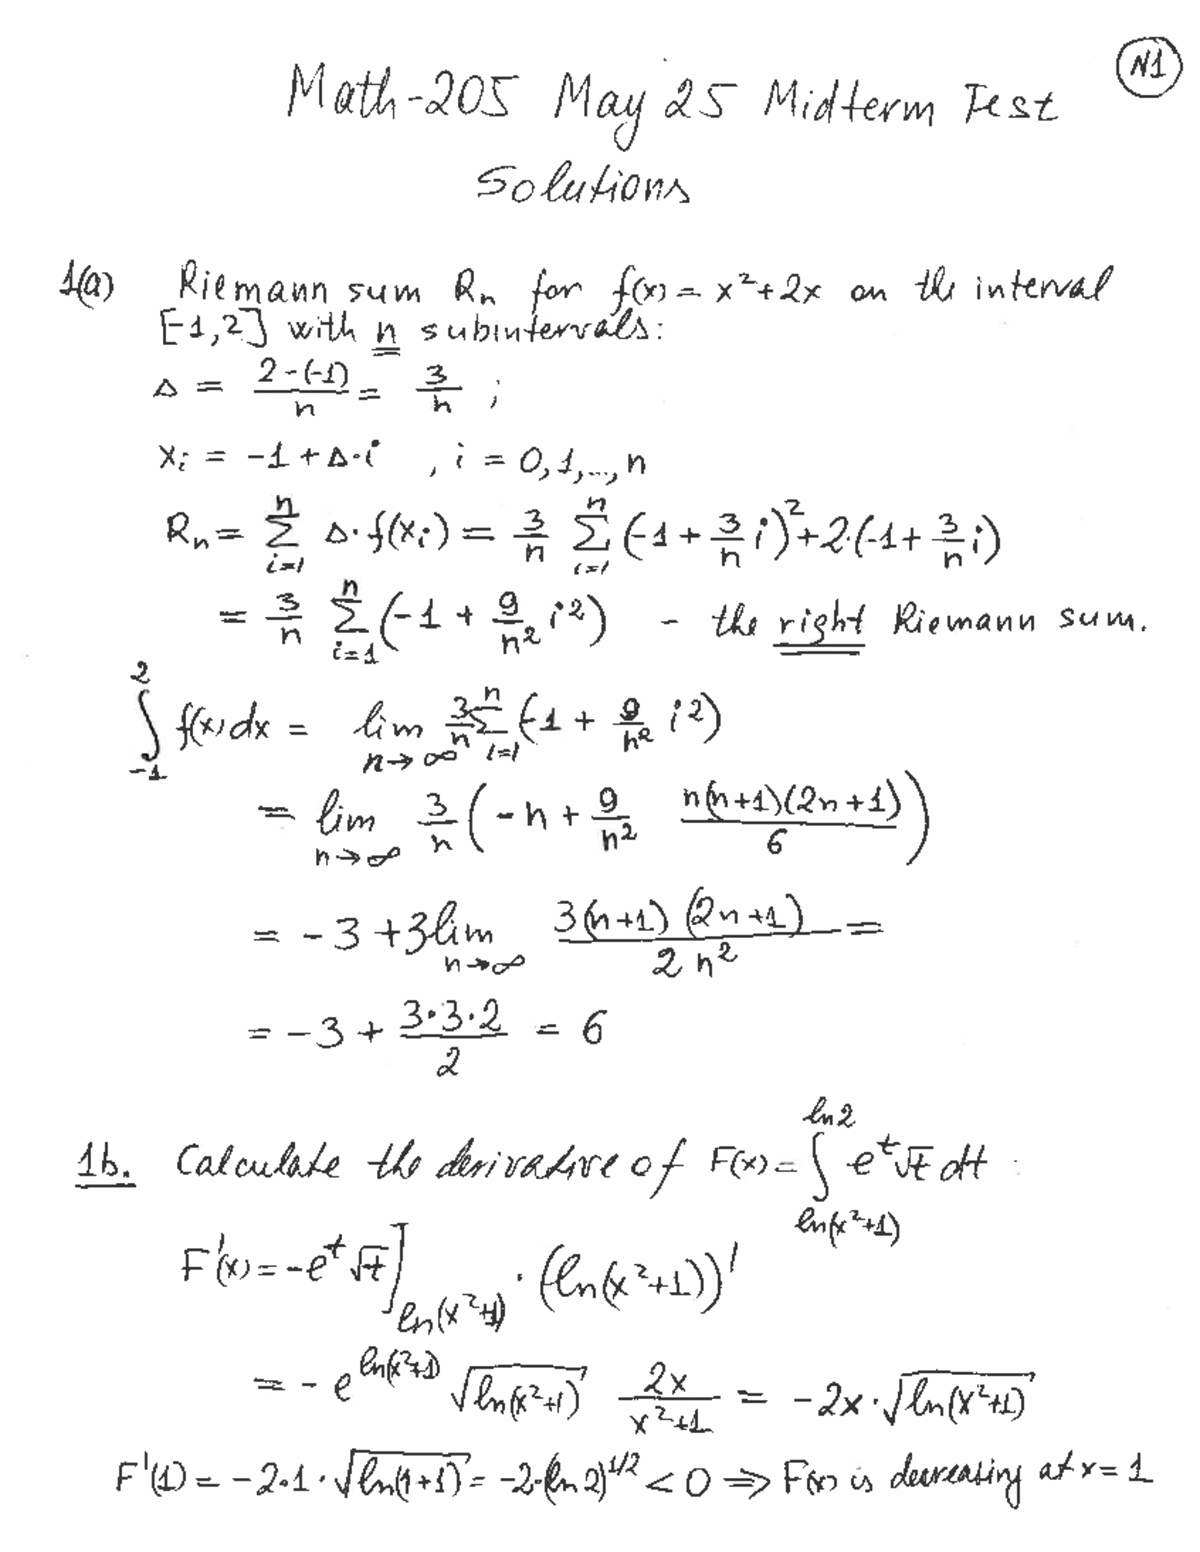 N1
Math-205 May 25 Midterm Test
Solutions
1(a) Riemann sum Rn for f(x) = x² + 2x on the interval
[-1,2] with n subintervals:
Δ = (2-(-1))/n = 3/n ;
xᵢ = -1 + Δ·i , i = 0,1,...,n
Rn = Σ_{i=1}^{n} Δ·f(xᵢ) = 3/n Σ_{i=1}^{n} (-1 + 3/n i)² + 2·(-1 + 3/n i)
= 3/n Σ_{i=1}^{n} (-1 + 9/n² i²) - the right Riemann sum.
∫_{-1}^{2} f(x)dx = lim_{n→∞} 3/n Σ_{i=1}^{n} (-1 + 9/n² i²)
= lim_{n→∞} 3/n (-n + 9/n² n(n+1)(2n+1)/6)
= -3 + 3 lim_{n→∞} 3(n+1)(2n+1)/2n² =
= -3 + 3·3·2/2 = 6
1b. Calculate the derivative of F(x) = ∫_{ln(x²+1)}^{ln2} e^t √t dt :
F'(x) = -e^t √t]_{ln(x²+1)} · (ln(x²+1))'
= -e^{ln(x²+1)} √(ln(x²+1)) 2x/(x²+1) = -2x·√(ln(x²+1))
F'(1) = -2·1·√(ln(1+1)) = -2·(ln2)^{1/2} < 0 ⇒ F(x) is decreasing at x = 1